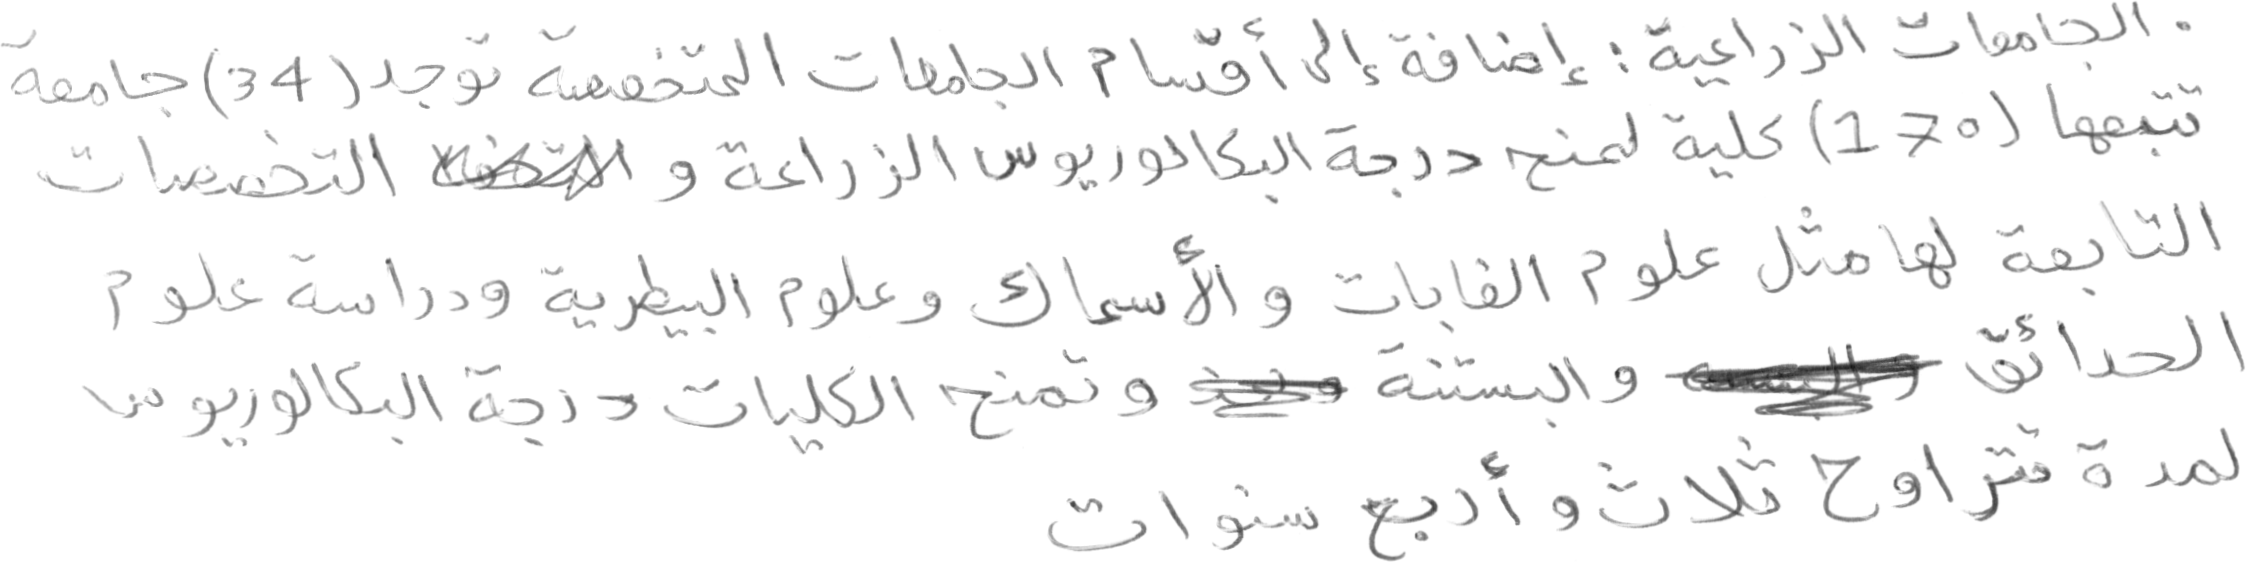 . الجامعات الزراعية : إضافة إلى أقسام الجامعات المتخصصة توجد (34) جامعة
تتبعها (170) كلية لمنح درجة البكالوريوس الزراعة و التخصصات
التابعة لها مثل علوم الغابات و الأسماك وعلوم البيطرية ودراسة علوم
الحدائق والبستنة وتمنح الكليات درجة البكالوريوس
لمدة تتراوح ثلاث و أربع سنوات